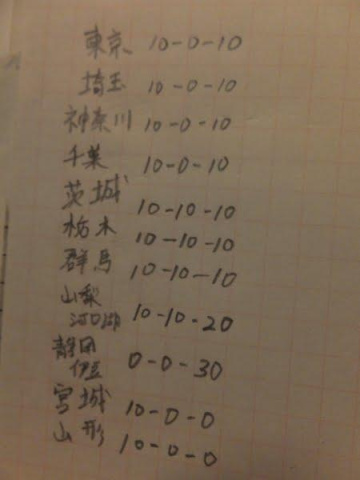 東京 10-0-10
埼玉 10-0-10
神奈川 10-0-10
千葉 10-0-10
茨城 10-10-10
栃木 10-10-10
群馬 10-10-10
山梨
河口湖 10-10-20
静岡
伊豆 0-0-30
宮城 10-0-0
山形 10-0-0